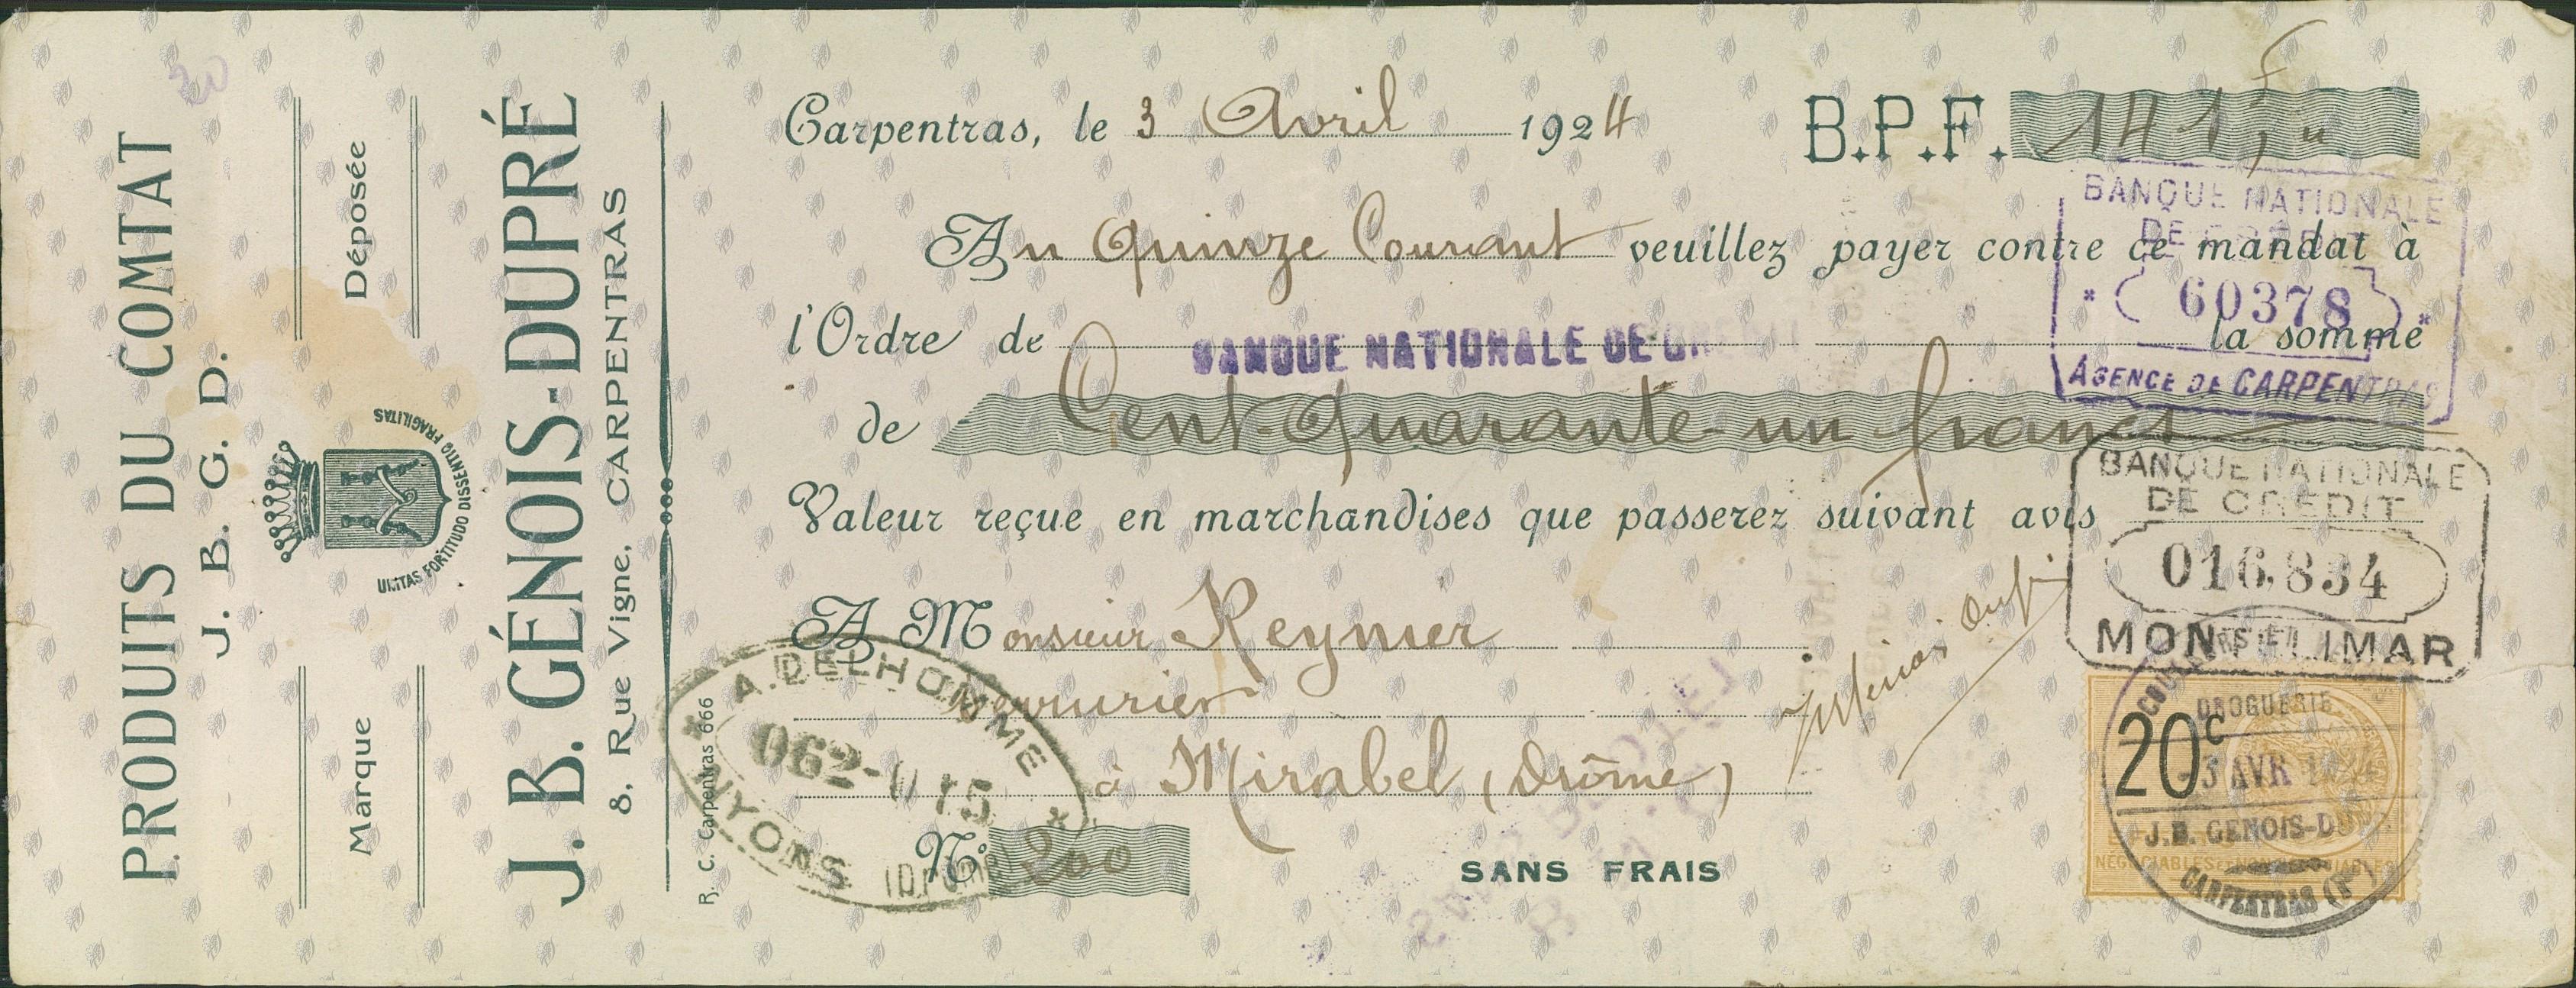 PRODUITS DU COMTAT
J. B. G. D.
Marque Déposée
UNITAS FORTITUDO DISSENTIO FRAGILITAS
J. B. GÉNOIS-DUPRÉ
8, Rue Vigne, CARPENTRAS
R. C. Carpentras 666
Carpentras, le 3 Avril 1924 B.P.F. 141,"
Au Quinze Courant veuillez payer contre ce mandat à
l'Ordre de BANQUE NATIONALE DE la somme
de Cent Quarante un francs
Valeur reçue en marchandises que passerez suivant avis
A Monsieur Reynier
à Mirabel (Drôme)
N° 200
SANS FRAIS
BANQUE NATIONALE
DE
60378
AGENCE DE CARPENTRAS
BANQUE NATIONALE
DE CREDIT
016,834
MONTELIMAR
A. DELHOMME
NYONS (Drôme)
20c
DROGUERIE
3 AVR
J.B. GENOIS-DUPRÉ
CARPENTRAS
20